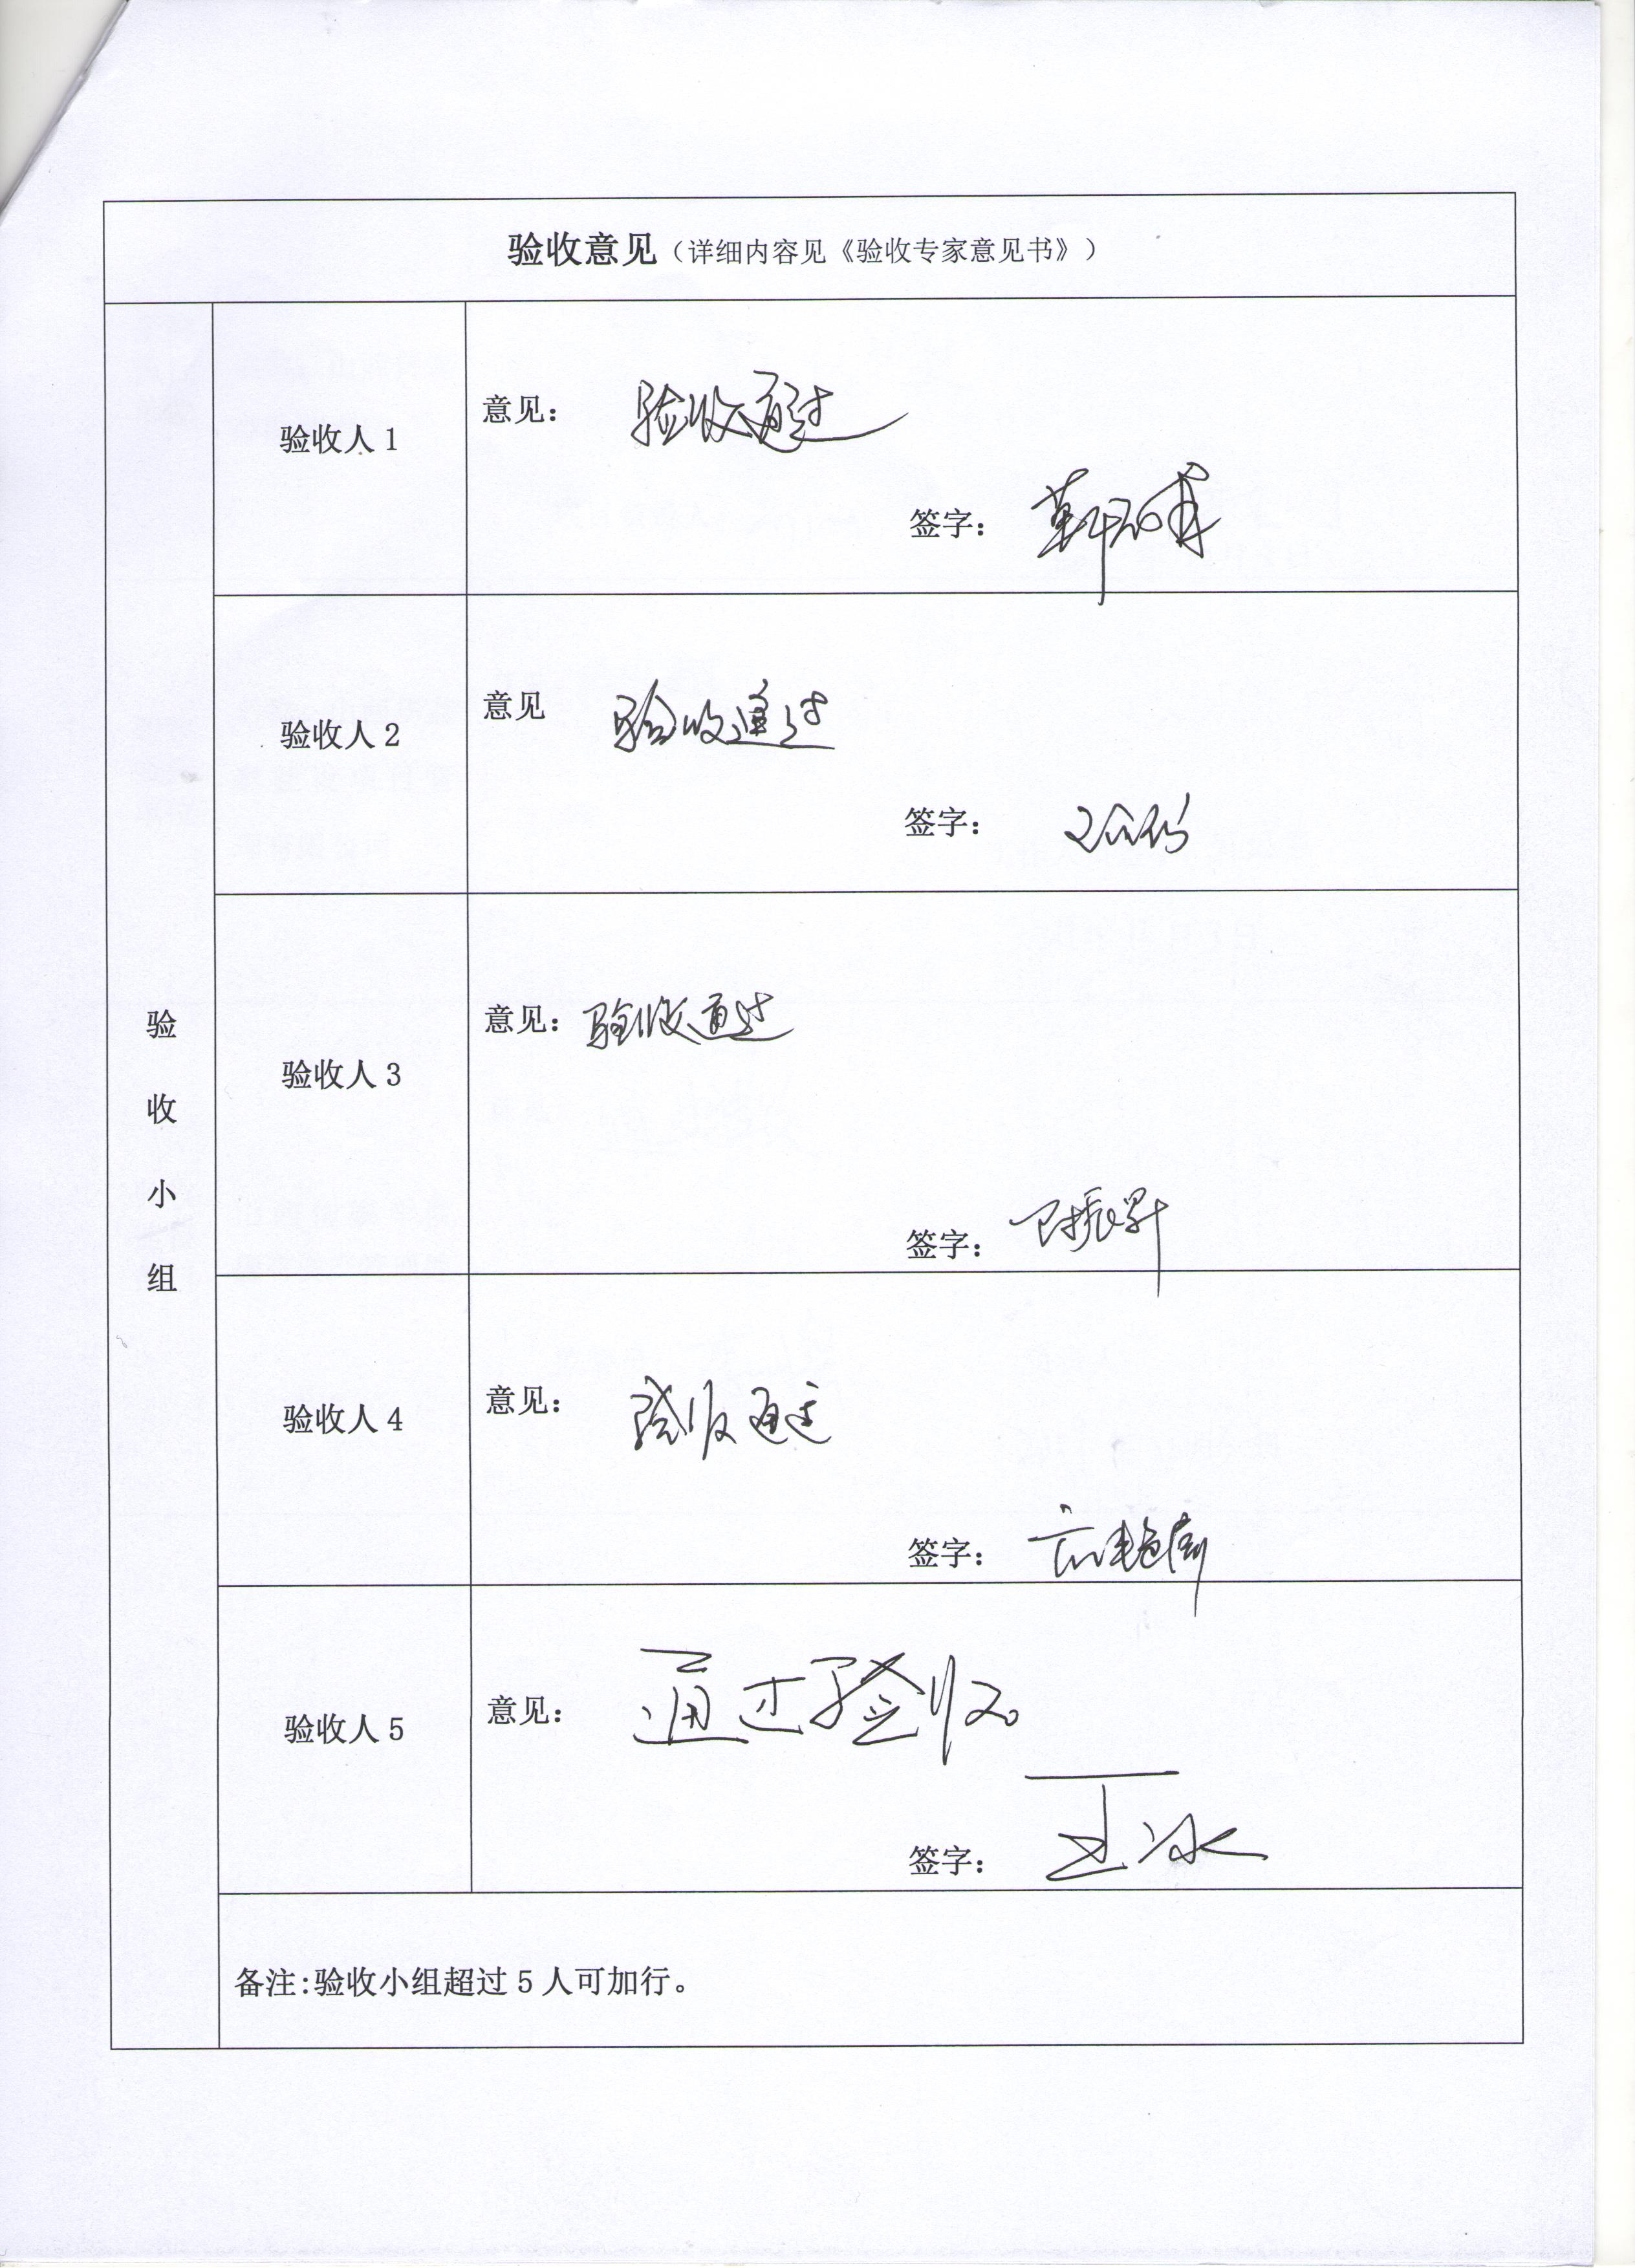 验收意见（详细内容见《验收专家意见书》）
验收小组
验收人1
意见： 验收通过
签字：
验收人2
意见 验收通过
签字：
验收人3
意见：验收通过
签字：
验收人4
意见： 验收通过
签字：
验收人5
意见： 通过验收。
签字： 王冰
备注:验收小组超过5人可加行。